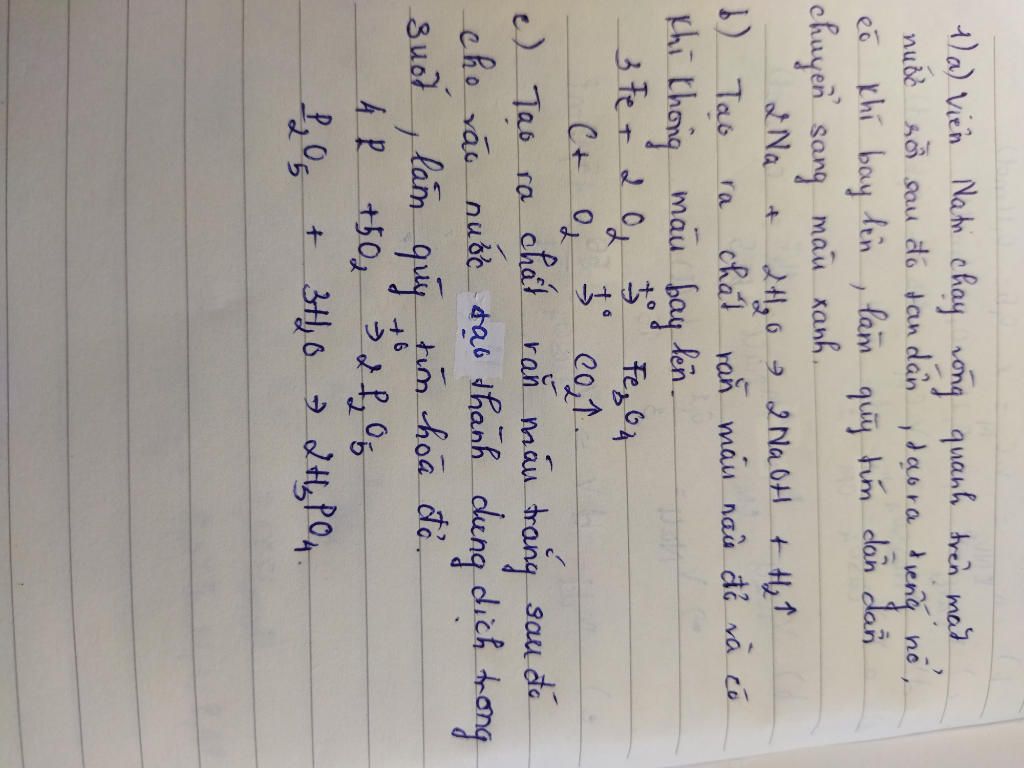 1)a) Viên Natri chạy vòng quanh trên mặt
nước rồi sau đó tan dần, tạo ra tiếng nổ,
có khí bay lên, làm quỳ tím dần dần
chuyển sang màu xanh.
2Na + 2H₂O → 2NaOH + H₂↑
b) Tạo ra chất rắn màu nâu đỏ và có
khí không màu bay lên.
3Fe + 2O₂ t°→ Fe₃O₄
C + O₂ t°→ CO₂↑.
c) Tạo ra chất rắn màu trắng sau đó
cho vào nước tạo thành dung dịch trong
suốt, làm quỳ tím hóa đỏ.
4P + 5O₂ t°→ 2P₂O₅
P₂O₅ + 3H₂O → 2H₃PO₄.